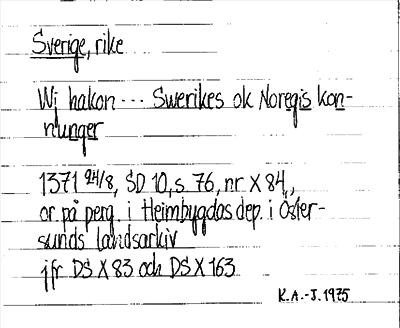 Sverige, rike
Wj hakon --- Swerikes ok Noregis kon-
nunger
1371 24/8, SD 10, s. 76, nr X 84,,
or på perg. i Heimbygdas dep. i Öster-
sunds landsarkiv
jfr DS X 83 och DS X 163
K.A.-J. 1975